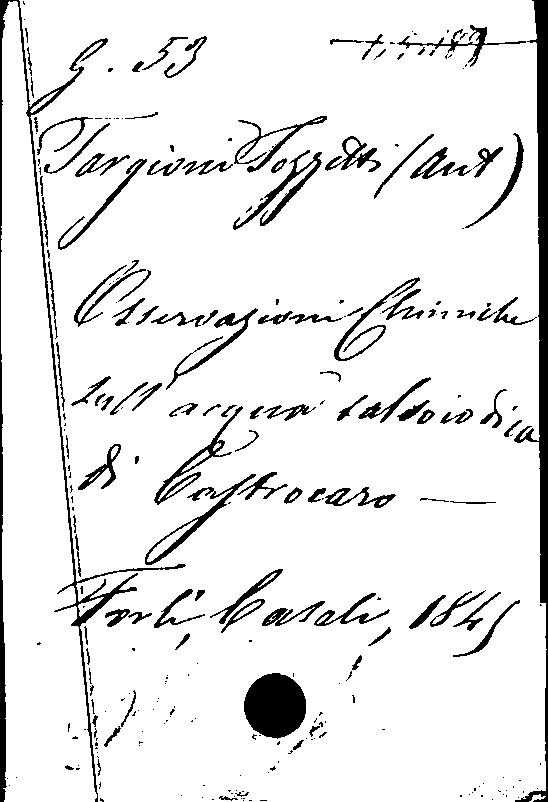 G. 53
Targioni Tozzetti (Ant)
Osservazioni Chimiche
sull' acqua salsoiodica
di Castrocaro —
Forlì, Casali, 1845